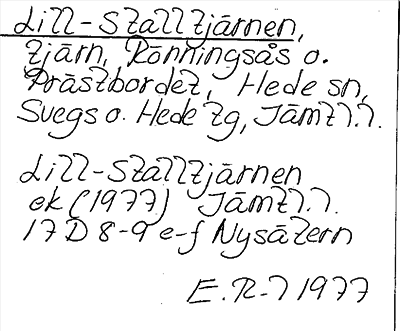 Lill-Stalltjärnen,
tjärn, Rönningsås o.
Prästbordet, Hede sn,
Svegs o. Hede tg, Jämtl.l.
Lill-Stalltjärnen
ek (1977) Jämtl.l.
17D 8-9 e-f Nysätern
E.R-l 1977